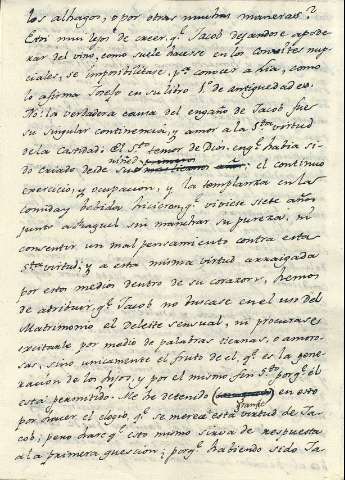 los alhagos, o por otras muchas maneras?
Estoi mui lejos de creer, qe. Jacob dejandose apode-
rar del vino, como suele hacerse en los convites nup-
ciales, se imposibilitase, pa. conocer a Lia, como
lo afirma Josefo en su libro 1o. de antiguedades.
No: la verdadera causa del engaño de Jacob fue
su singular continencia, y amor a la Sta. virtud
de la Castidad. El Sto. temor de Dios, en qe. havia si-
do criado desde su niñez: el continuo
exercicio, y ocupacion, y la templanza en las
comidas y bebida hicieron, qe. viviese siete años
junto a Raquel sin manchar su pureza, ni
consentir un mal pensamiento contra esta
Sta. virtud; y a esta misma virtud arraigada
por estos medios dentro de su corazon, hemos
de atribuir, qe. Jacob no buscase en el uso del
Matrimonio el deleite sensual, ni procurase
excitarle por medio de palabras tiernas, o amoro-
sas, sino unicamente el fruto de el, qe. es la gene-
racion de los hijos, y por el mismo fin Sto. porqe. el
está permitido. Me he detenido en esto
por hacer el elogio, qe. se merece esta virtud de Ja-
cob; pero hase qe. esto mismo sirva de respuesta
a la primera question; porqe. habiendo sido Ja-